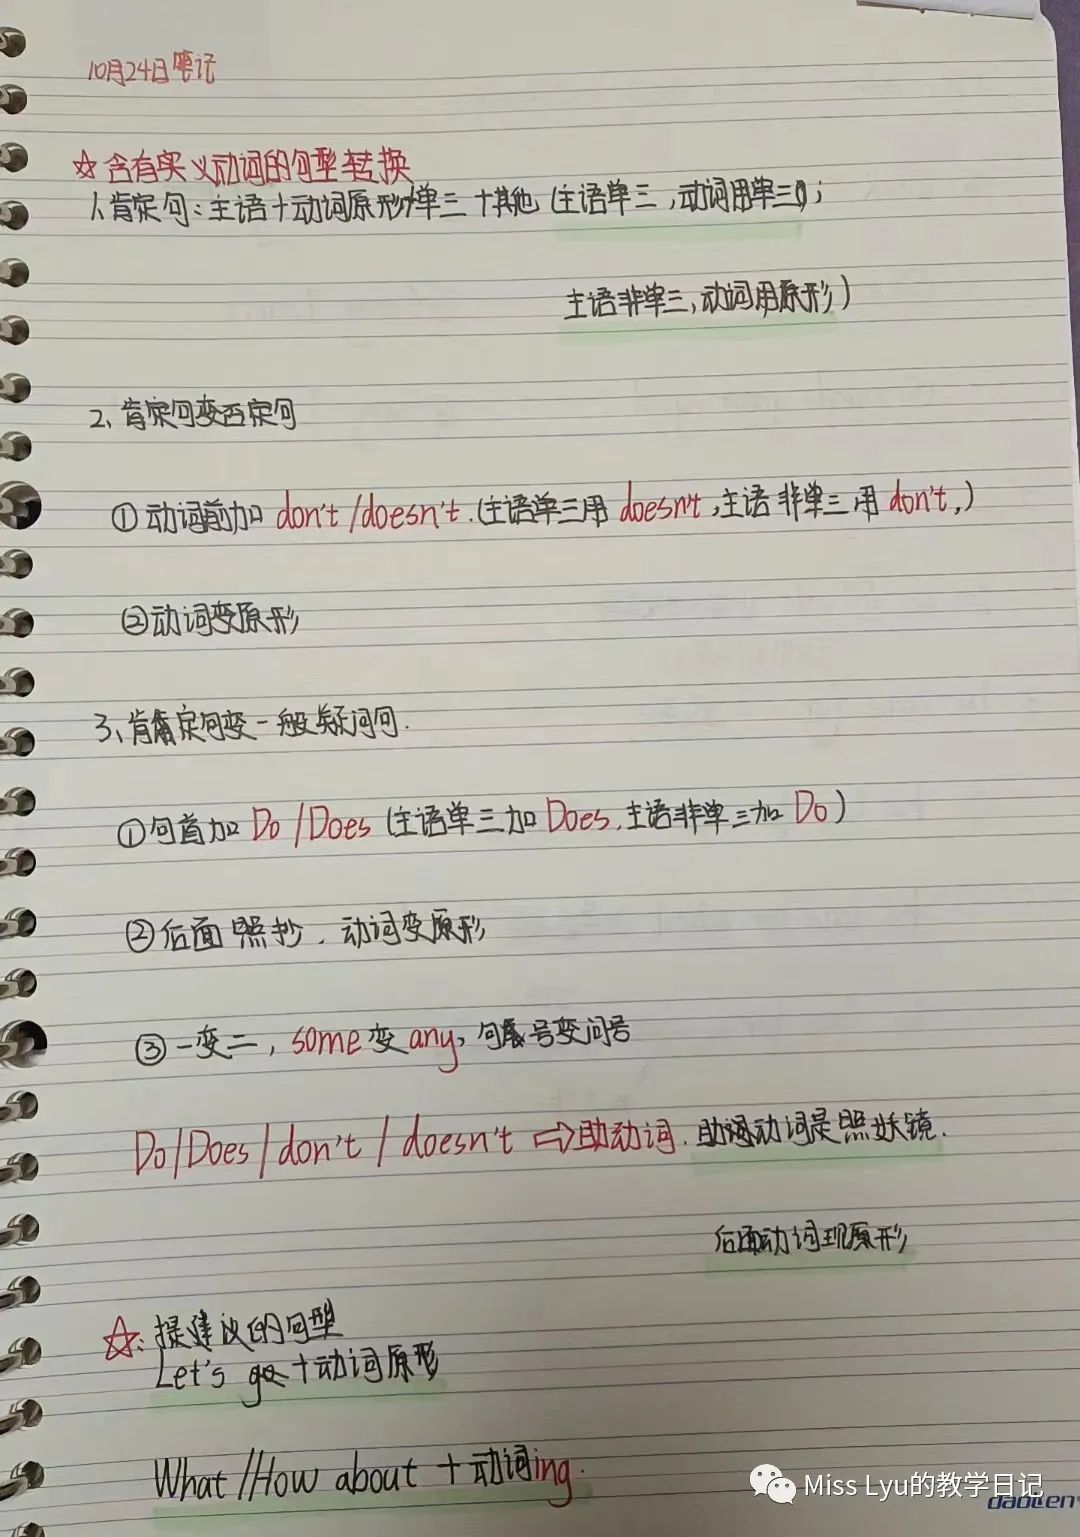 10月24日笔记
☆含有实义动词的句型转换
1、肯定句:主语+动词原形/单三+其他(主语单三,动词用单三;
主语非单三,动词用原形)
2、肯定句变否定句
①动词前加don't/doesn't.(主语单三用doesn't,主语非单三用don't,)
②动词变原形
3、肯定句变一般疑问句.
①句首加Do/Does(主语单三加Does,主语非单三加Do)
②后面照抄.动词变原形
③一变二,some变any,句号变问号
Do/Does/don't/doesn't⇨助动词.助动词是照妖镜.
后面动词现原形
☆:提建议的句型
Let's go+动词原形
What//How about+动词ing.
Miss Lyu的教学日记
daolen